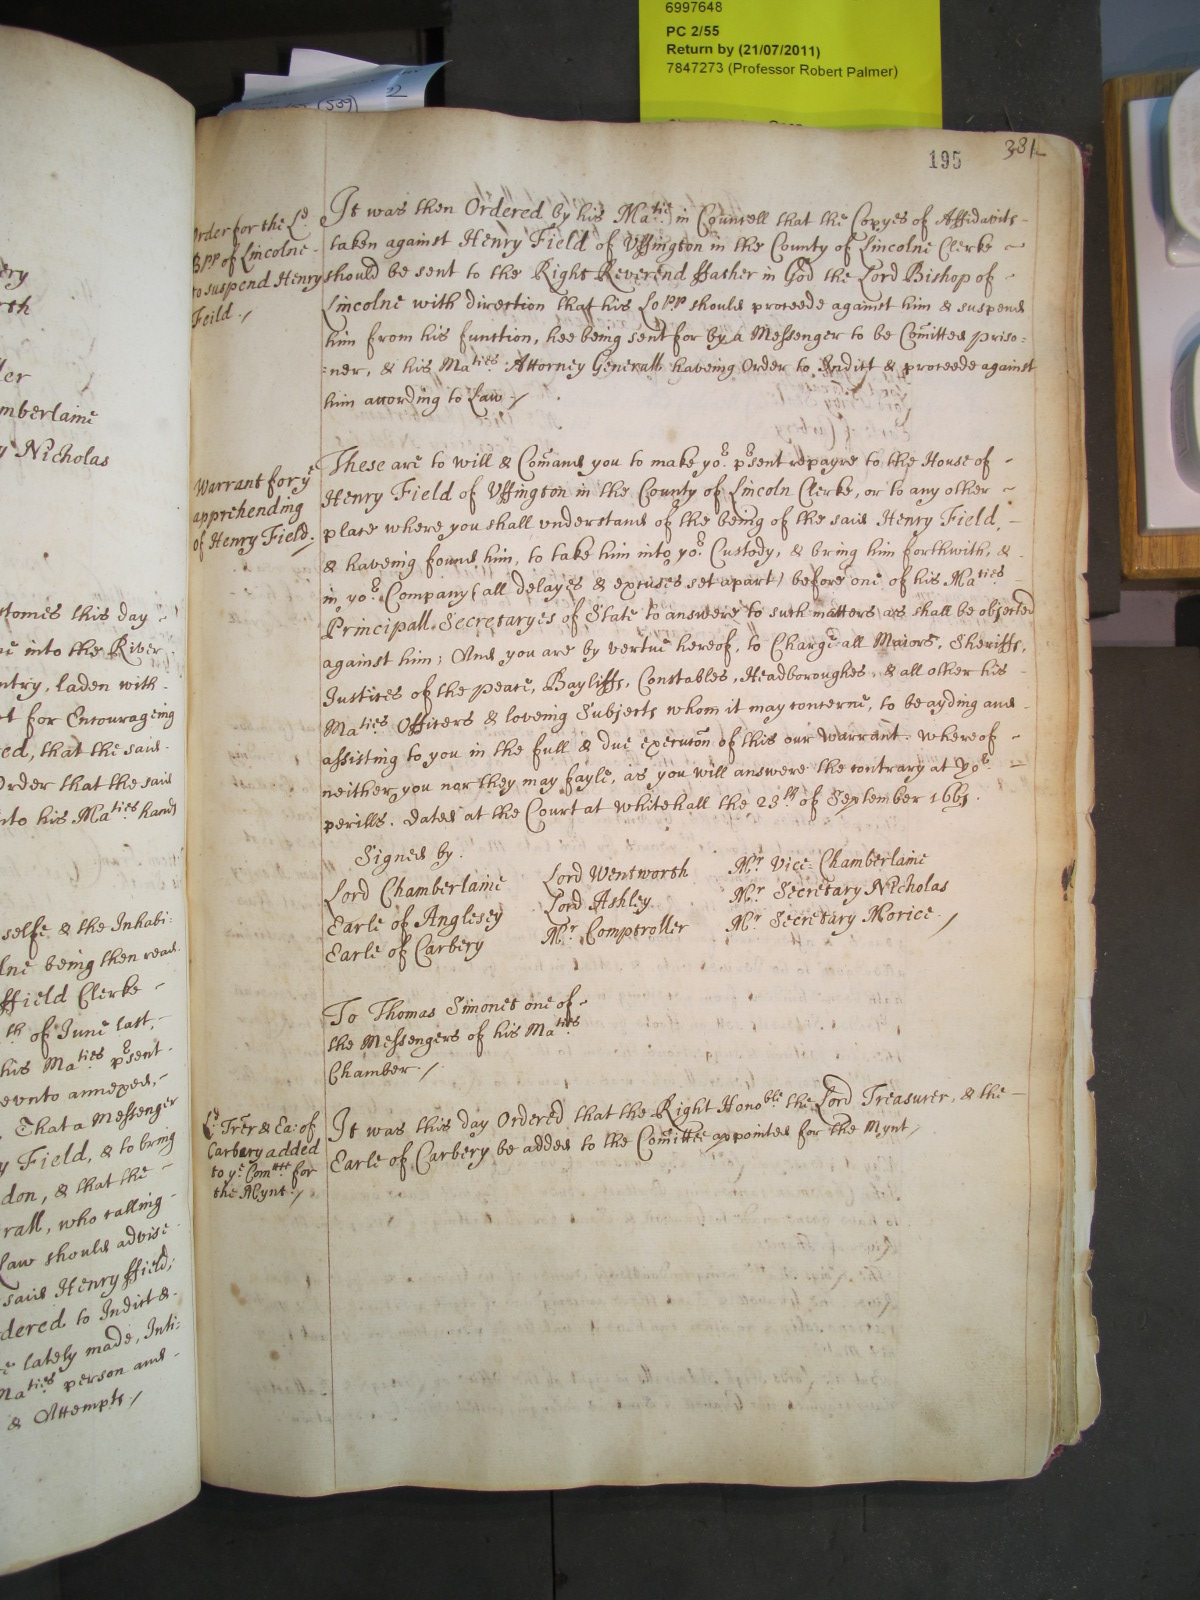 6997648
PC 2/55
Return by (21/07/2011)
7847273 (Professor Robert Palmer)
(539)
22
195
381
ery
rth
ler
mberlaine
y Nicholas
stomes this day
ne into the River
ntry, laden with
t for Encourageing
ed, that the said
Order that the said
nto his Maties hands
selfe & the Inhabi:
lne being then read
ffield Clerke
th of June last,
his Maties psent
evnto annexed,
That a Messenger
y Field, & to bring
don, & that the
rall, who calling
Law should advise
said Henry ffield,
dered to Indict &
e lately made, Inti:
Maties person and
& Attempts./
Order for the Ld
Bpp of Lincolne
to suspend Henry
Feild ./
It was then Ordered by his Matie in Councell that the Copyes of Affidavits
taken against Henry Field of Uffington in the County of Lincolne Clerke
should be sent to the Right Reverend ffather in God the Lord Bishop of
Lincolne with direction that his Lopp should proceede against him & suspend
him from his function, hee being sent for by a Messenger to be Comitted priso:
:ner, & his Maties Attorney Generall haveing Order to Indict & proceede against
him according to Law ./
Warrant for ye
apprehending
of Henry Field ./
These are to will & Comand you to make yor psent repayre to the House of
Henry Field of Uffington in the County of Lincoln Clerke, or to any other
place where you shall understand of the being of the said Henry Field,
& haveing found him, to take him into yor Custody, & bring him forthwith, &
in yor Company (all delayes & excuses set apart) before one of his Maties
Principall Secretaryes of State to answere to such matters as shall be objected
against him; And you are by vertue hereof, to Charge all Maiors, Sheriffs,
Justices of the peace, Bayliffs, Constables, Headboroughes, & all other his
Maties Officers & loveing Subjects whom it may concerne, to be ayding and
assisting to you in the full & due execucon of this our Warrant. Whereof
neither you nor they may fayle, as you will answere the contrary at yor
perills. Dated at the Court at Whitehall the 23th of September 1661.
Signed by.
Lord Chamberlaine
Earle of Anglesey
Earle of Carbery
Lord Wentworth
Lord Ashley
Mr Comptroller
Mr Vice-Chamberlaine
Mr Secretary Nicholas
Mr Secretary Morice ./
To Thomas Simones one of
the Messengers of his Maties
Chamber ./
Ld Trer & Ea: of
Carbery added
to ye Comttee for
the Mynt ./
It was this day Ordered that the Right Honoble the Lord Treasurer, & the
Earle of Carbery be added to the Comittee appointed for the Mynt ./